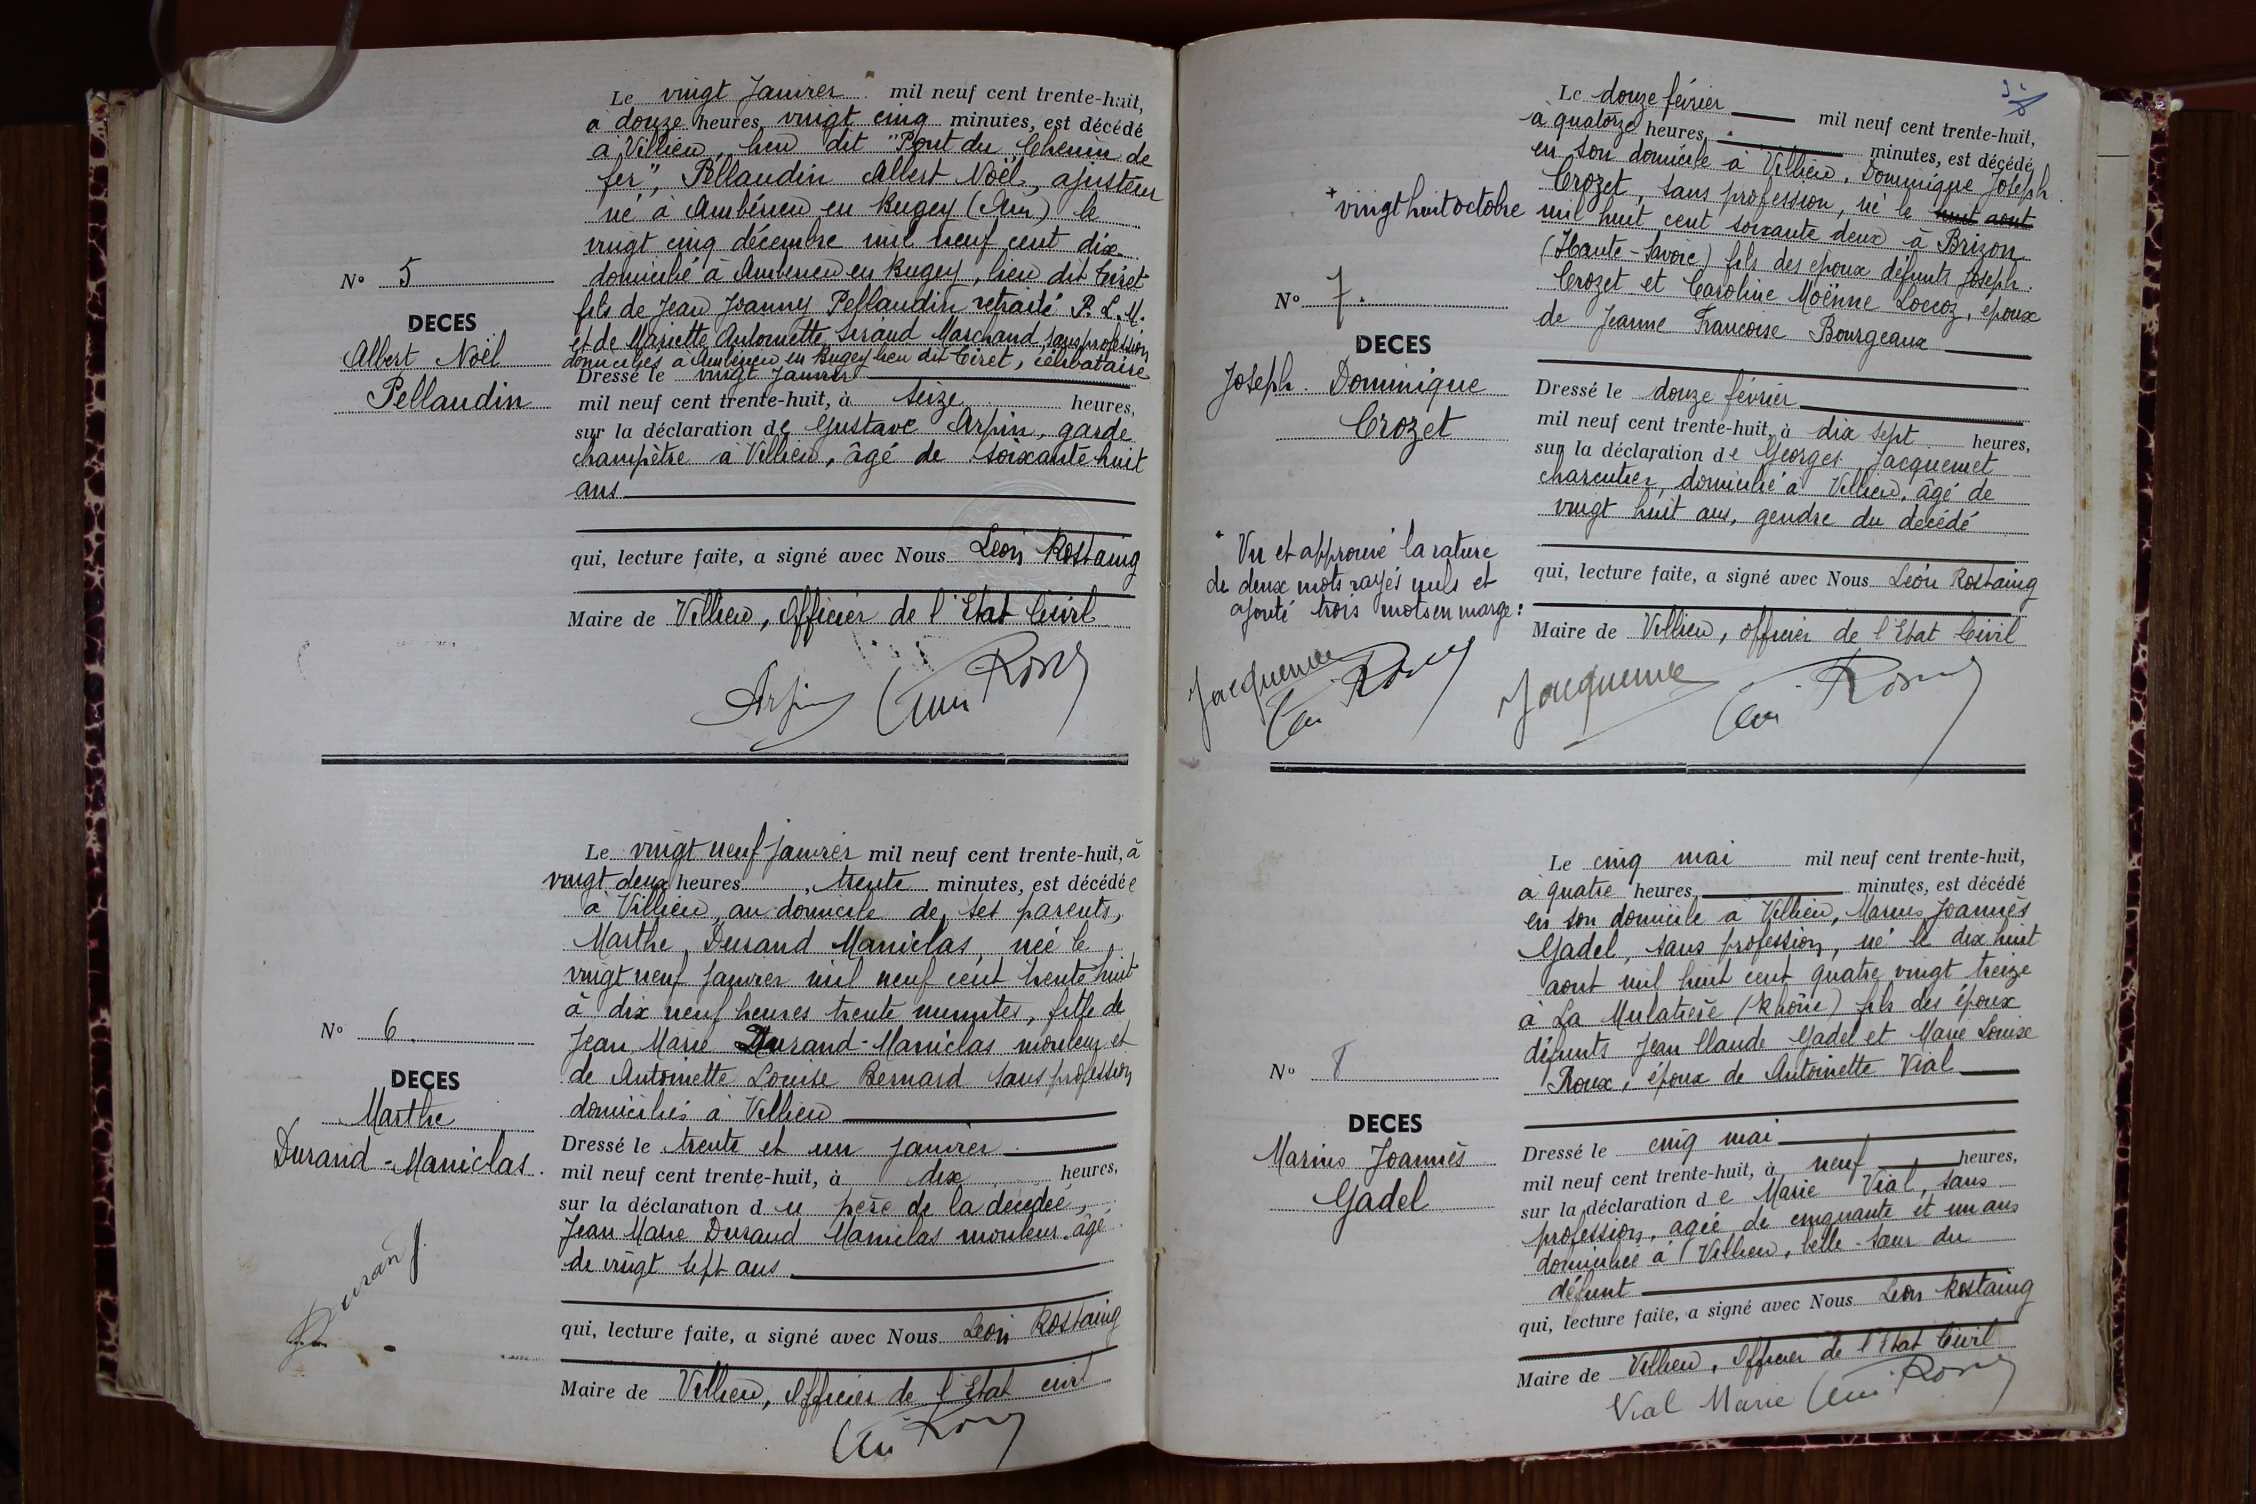 Le vingt Janvier mil neuf cent trente-huit,
à douze heures vingt cinq minutes, est décédé
à Villieu, lieu dit "Pont du Chemin de
fer", Pellaudin Albert Noël, ajusteur
né à Ambérieu en Bugey (Ain) le
vingt cinq décembre mil neuf cent dix
domicilié à Ambérieu en Bugey, lieu dit Tiret
fils de Jean Joanny Pellaudin retraité P.L.M.
et de Mariette Antoinette Seraud Marchand sans profession
domiciliés à Ambérieu en Bugey lieu dit Tiret, célibataire
N° 5
DECES
Albert Noël
Pellaudin
Dressé le vingt Janvier
mil neuf cent trente-huit, à seize heures,
sur la déclaration de Gustave Arpin, garde
champêtre à Villieu, âgé de soixante huit
ans
qui, lecture faite, a signé avec Nous Léon Rostaing
Maire de Villieu, Officier de l'Etat Civil
Arpin
Le vingt neuf Janvier mil neuf cent trente-huit, à
vingt deux heures, trente minutes, est décédée
à Villieu, au domicile de ses parents,
Marthe Durand Maniclas, née le
vingt neuf Janvier mil neuf cent trente huit
à dix neuf heures trente minutes, fille de
Jean Marie Durand-Maniclas mouleur et
de Antoinette Louise Bernard sans profession
domiciliés à Villieu
N° 6.
DECES
Marthe
Durand-Maniclas.
Dressé le trente et un janvier
mil neuf cent trente-huit, à dix heures,
sur la déclaration du père de la décédée,
Jean Marie Durand Maniclas mouleur, âgé
de vingt sept ans
Durand J.
qui, lecture faite, a signé avec Nous Léon Rostaing
Maire de Villieu, Officier de l'Etat civil
Le douze février mil neuf cent trente-huit,
à quatorze heures, minutes, est décédé
en son domicile à Villieu, Dominique Joseph
Crozet, sans profession, né le huit aout
+ vingt huit octobre
mil huit cent soixante deux à Brizon
(Haute-Savoie) fils des époux défunts Joseph
Crozet et Caroline Moënne Loccoz, époux
de Jeanne Francoise Bourgeaux
N° 7.
DECES
Joseph Dominique
Crozet
Dressé le douze février
mil neuf cent trente-huit, à dix sept heures,
sur la déclaration de Georges Jacquemet
charcutier, domicilié à Villieu, âgé de
vingt huit ans, gendre du décédé
+ Vu et approuvé la rature
de deux mots rayés nuls et
ajouté trois mots en marge:
qui, lecture faite, a signé avec Nous Léon Rostaing
Maire de Villieu, officier de l'Etat Civil
Le cinq mai mil neuf cent trente-huit,
à quatre heures, minutes, est décédé
en son domicile à Villieu, Marius Joannès
Gadel, sans profession, né le dix huit
aout mil huit cent quatre vingt treize
à La Mulatière (Rhône) fils des époux
défunts Jean Claude Gadel et Marie Louise
Roux, époux de Antoinette Vial
N° 8
DECES
Marius Joannès
Gadel
Dressé le cinq mai
mil neuf cent trente-huit, à neuf heures,
sur la déclaration de Marie Vial, sans
profession, agée de cinquante et un ans
domiciliée à Villieu, belle-sœur du
défunt
qui, lecture faite, a signé avec Nous Léon Rostaing
Maire de Villieu, Officier de l'Etat Civil
Vial Marie